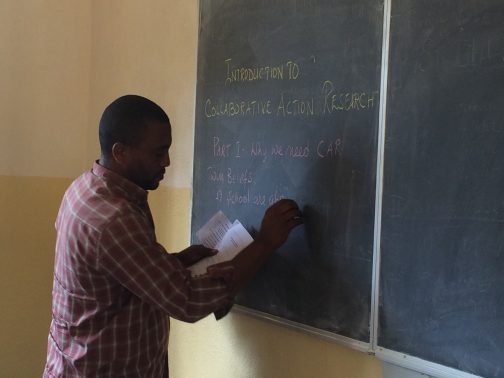 INTRODUCTION TO
COLLABORATIVE ACTION RESEARCH
PART I - Why we need CAR
Beliefs
School are